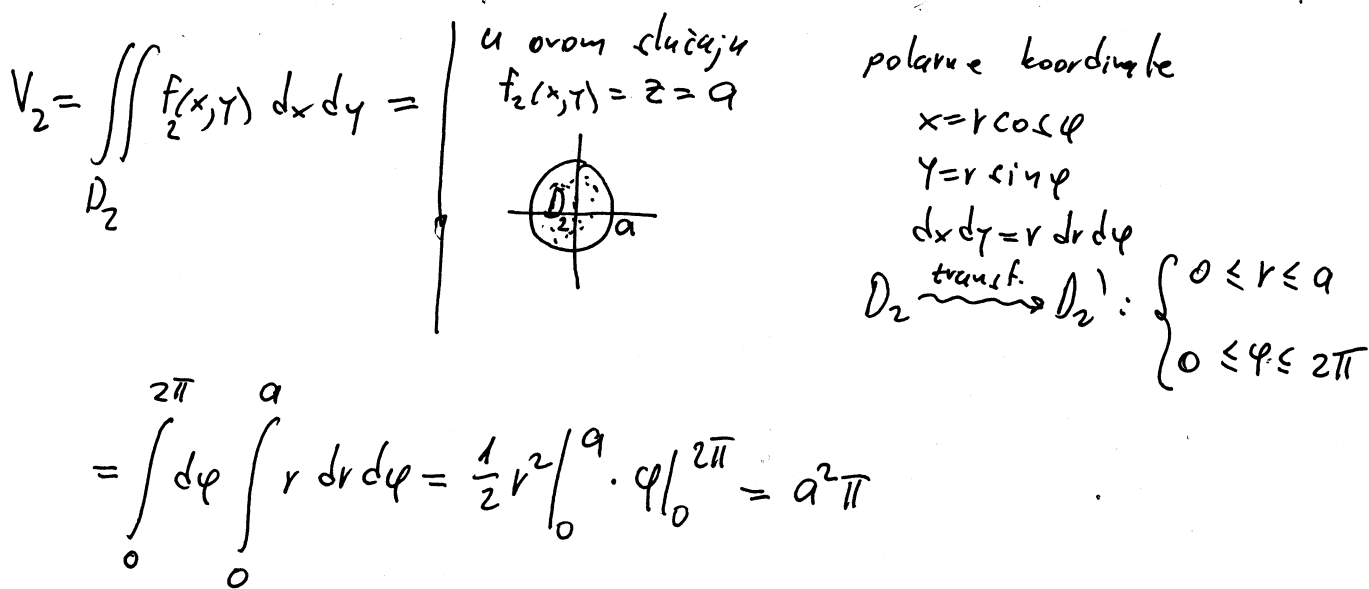 V₂ = ∬_{D₂} f₂(x,y) dx dy =
u ovom slučaju
f₂(x,y) = z = a
D₂
a
polarne koordinate
x = r cos φ
y = r sin φ
dx dy = r dr dφ
D₂ transf. ⟿ D₂' : { 0 ≤ r ≤ a
0 ≤ φ ≤ 2π
= ∫₀^{2π} dφ ∫₀^{a} r dr dφ = 1/2 r² |₀^{a} · φ |₀^{2π} = a²π